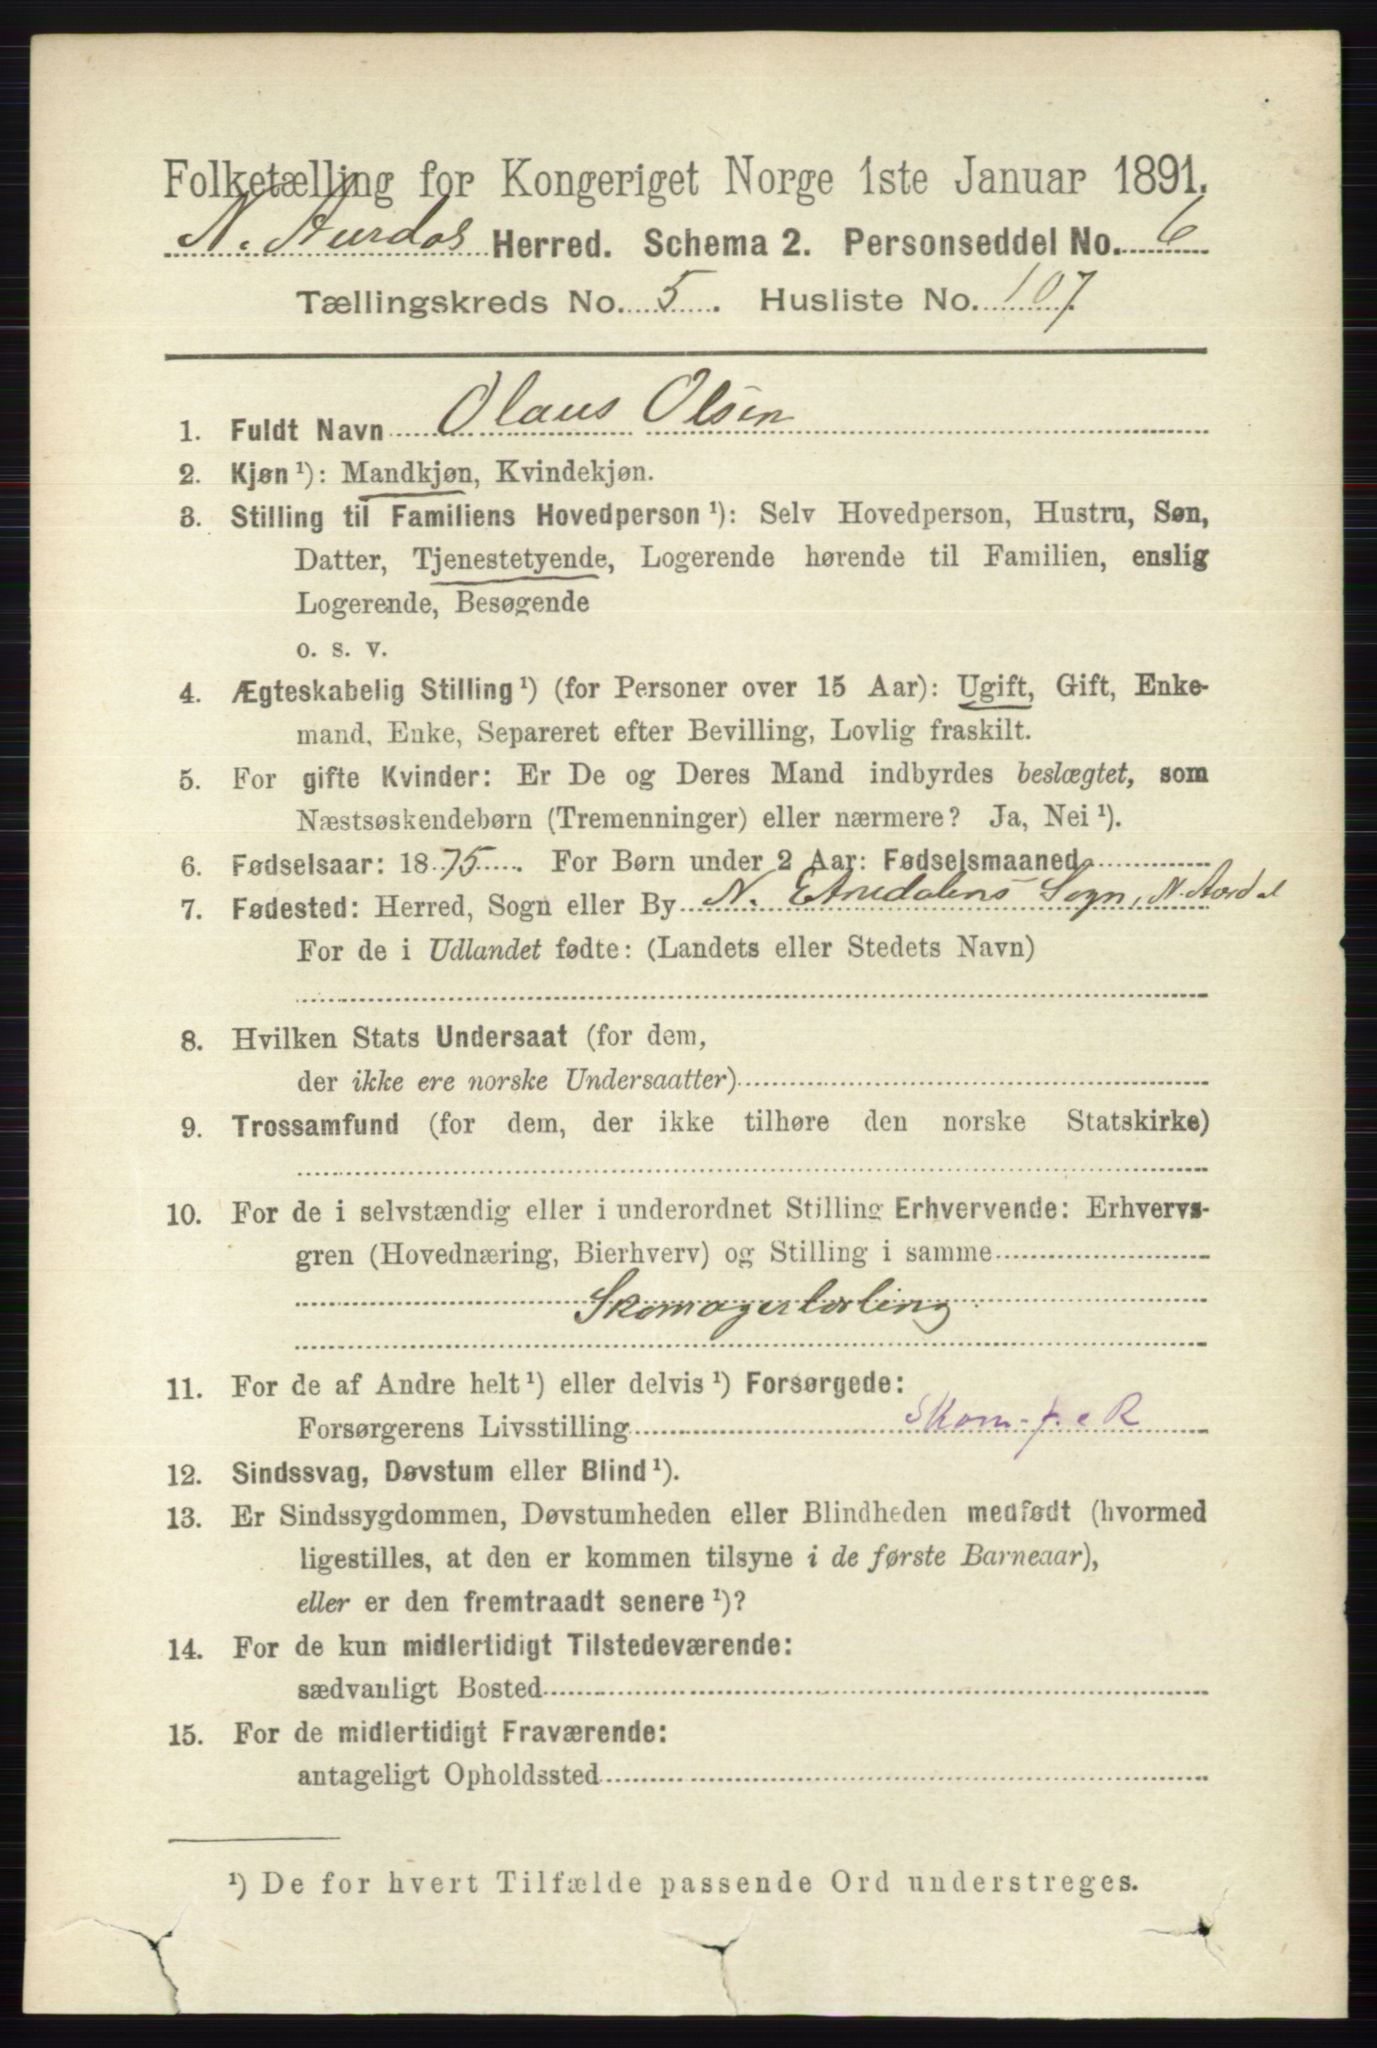 Folketælling for Kongeriget Norge 1ste Januar 1891.
N. Aurdals Herred. Schema 2. Personseddel No. 6
Tællingskreds No. 5. Husliste No. 107.
1. Fuldt Navn Olaus Olsen
2. Kjøn ¹): Mandkjøn, Kvindekjøn.
3. Stilling til Familiens Hovedperson ¹): Selv Hovedperson, Hustru, Søn,
Datter, Tjenestetyende, Logerende hørende til Familien, enslig
Logerende, Besøgende
o. s. v.
4. Ægteskabelig Stilling ¹) (for Personer over 15 Aar): Ugift, Gift, Enke-
mand, Enke, Separeret efter Bevilling, Lovlig fraskilt.
5. For gifte Kvinder: Er De og Deres Mand indbyrdes beslægtet, som
Næstsøskendebørn (Tremenninger) eller nærmere? Ja, Nei ¹).
6. Fødselsaar: 1875. For Børn under 2 Aar: Fødselsmaaned
7. Fødested: Herred, Sogn eller By N. Etnedalens Sogn, N. Aurdal
For de i Udlandet fødte: (Landets eller Stedets Navn)
8. Hvilken Stats Undersaat (for dem,
der ikke ere norske Undersaatter)
9. Trossamfund (for dem, der ikke tilhøre den norske Statskirke)
10. For de i selvstændig eller i underordnet Stilling Erhvervende: Erhvervs-
gren (Hovednæring, Bierhverv) og Stilling i samme
Skomagerlærling
11. For de af Andre helt ¹) eller delvis ¹) Forsørgede:
Forsørgerens Livsstilling Skom. f. e R
12. Sindssvag, Døvstum eller Blind ¹).
13. Er Sindssygdommen, Døvstumheden eller Blindheden medfødt (hvormed
ligestilles, at den er kommen tilsyne i de første Barneaar),
eller er den fremtraadt senere ¹)?
14. For de kun midlertidigt Tilstedeværende:
sædvanligt Bosted
15. For de midlertidigt Fraværende:
antageligt Opholdssted
¹) De for hvert Tilfælde passende Ord understreges.